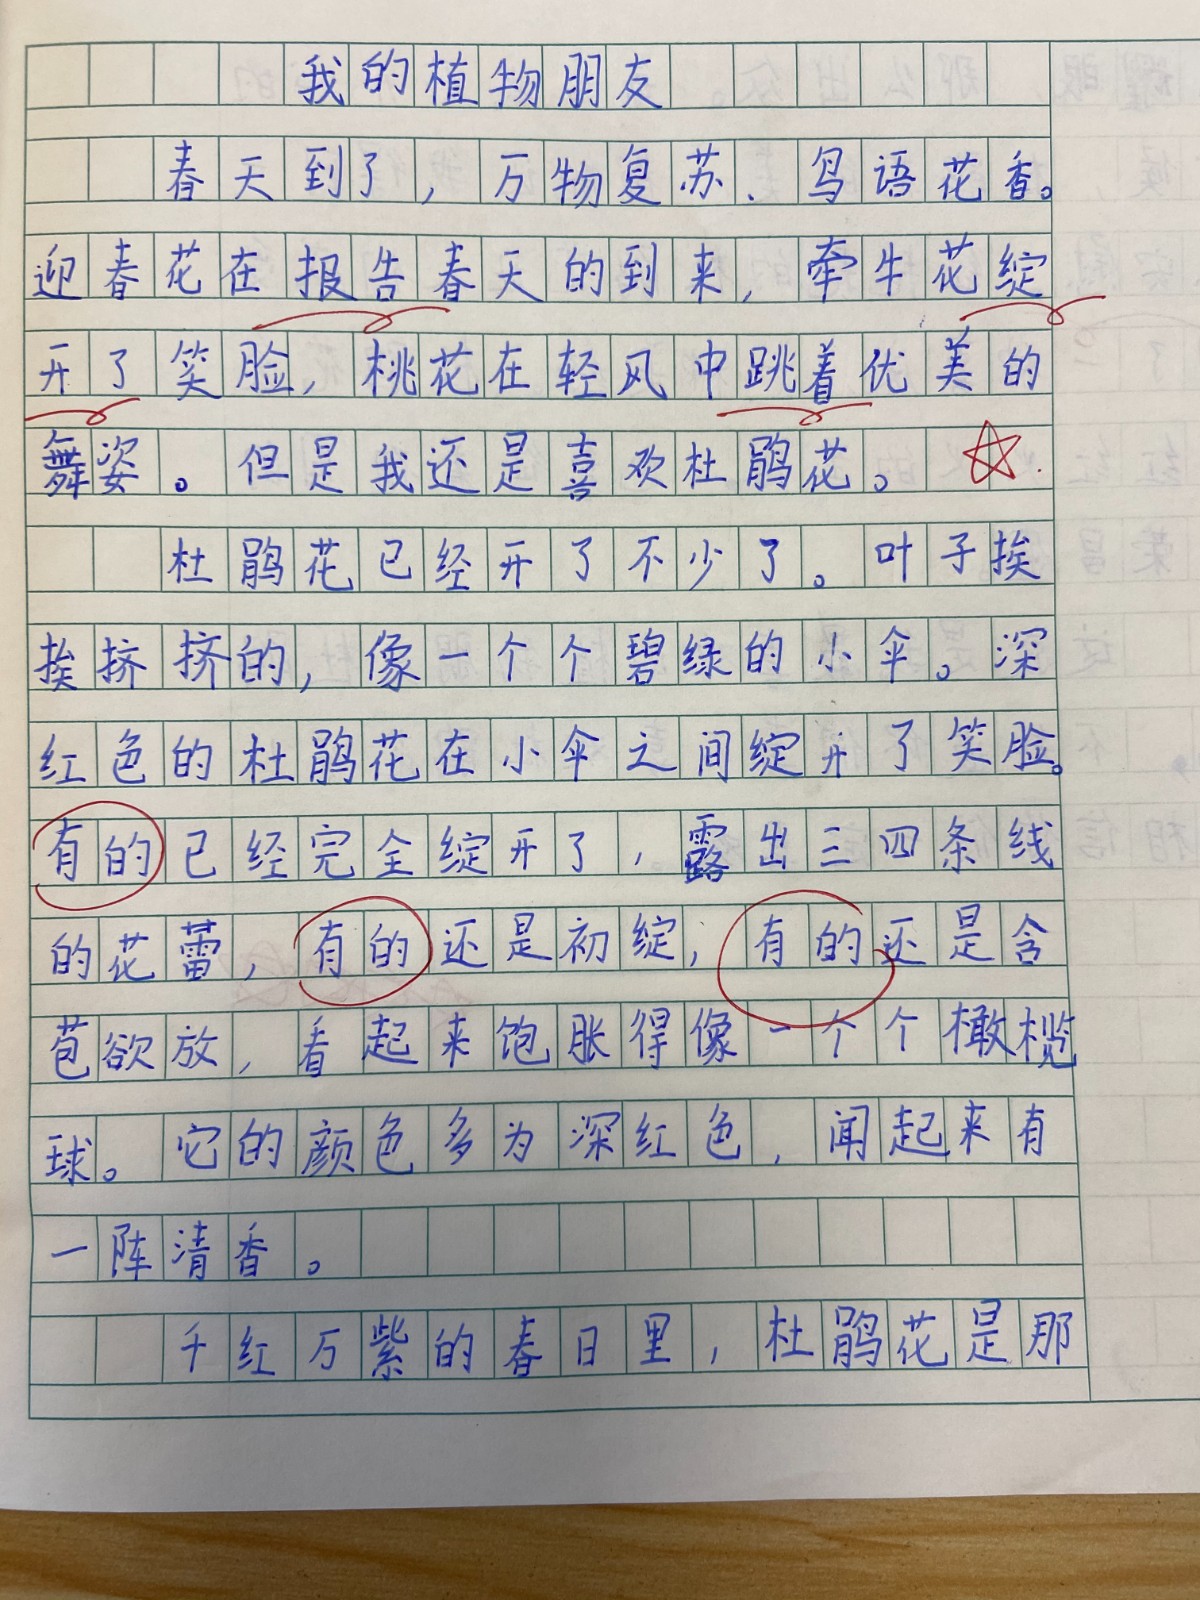 我的植物朋友
春天到了，万物复苏、鸟语花香。
迎春花在报告春天的到来，牵牛花绽
开了笑脸，桃花在轻风中跳着优美的
舞姿。但是我还是喜欢杜鹃花。
杜鹃花已经开了不少了。叶子挨
挨挤挤的，像一个个碧绿的小伞。深
红色的杜鹃花在小伞之间绽开了笑脸。
有的已经完全绽开了，露出三四条线
的花蕾，有的还是初绽，有的还是含
苞欲放，看起来饱胀得像一个个橄榄
球。它的颜色多为深红色，闻起来有
一阵清香。
千红万紫的春日里，杜鹃花是那